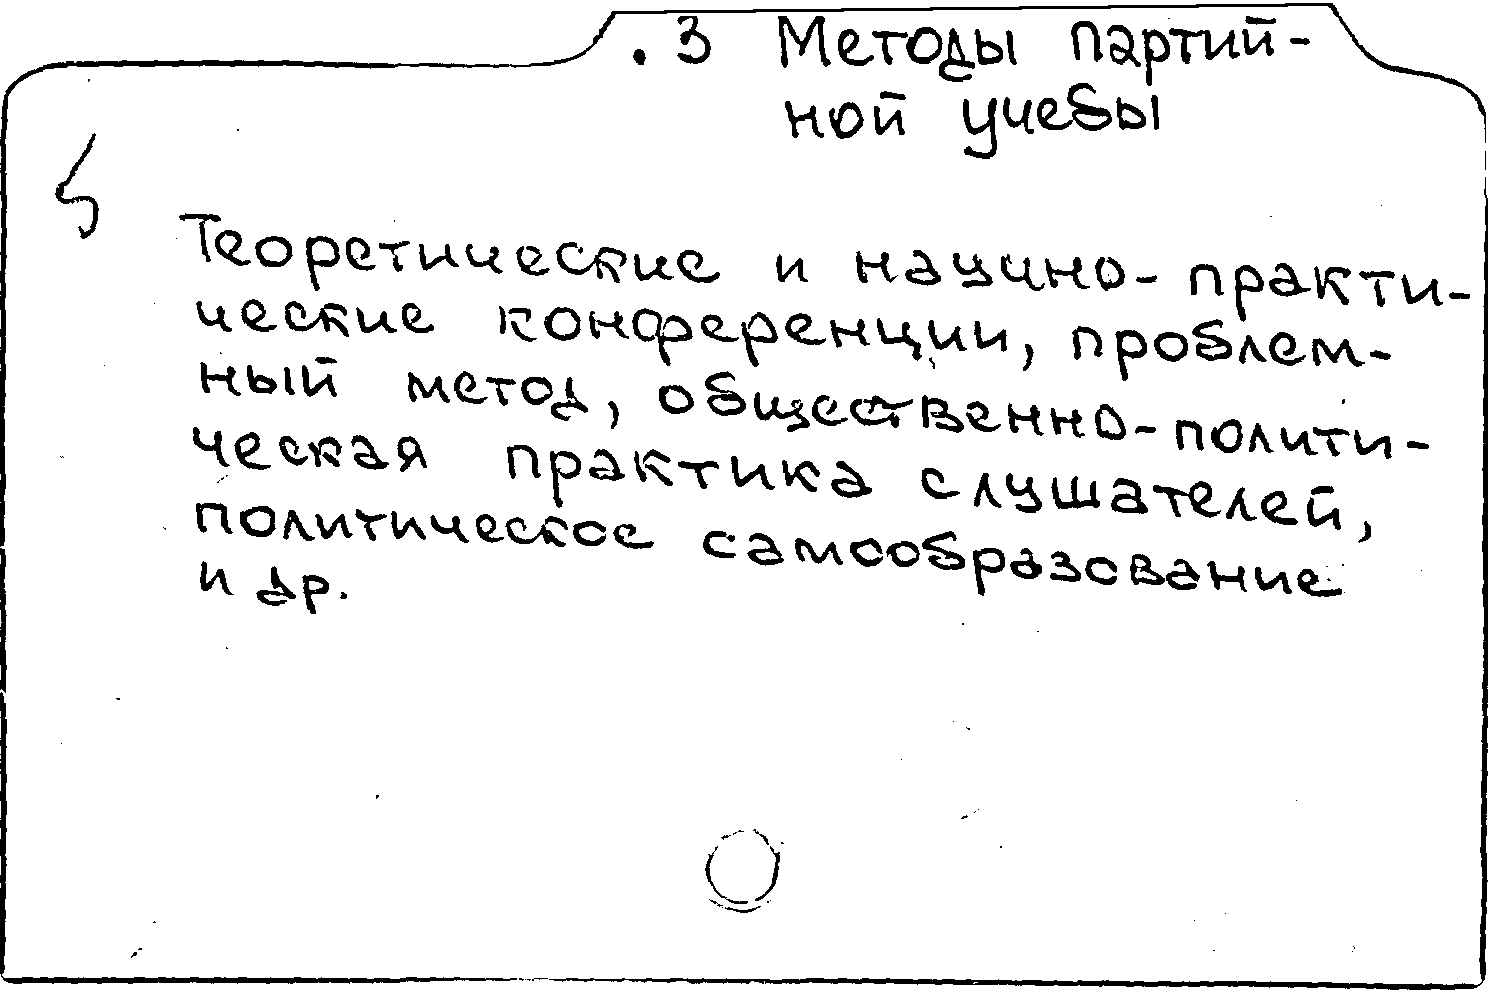 .3 Методы партий-
ной учебы
Теоретические и научно-практи-
ческие конференции, проблем-
ный метод, общественно-полити-
ческая практика слушателей,
политическое самообразование
и др.